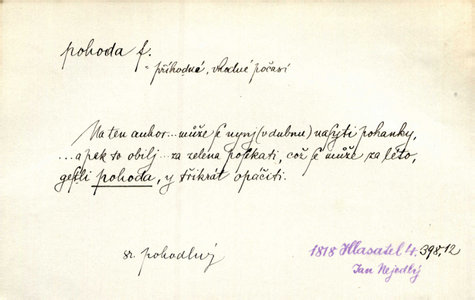 pohoda f.
= příhodné, vhodné počasí
Na ten auhor... může se nynj (v dubnu) nasýti pohanky,
... a pak to obilj... za zelena posekati, což se může za léto,
gestli pohoda, y třikrát opáčiti.
sr. pohodlný
1818 Hlasatel 4. 398, 12
Jan Nejedlý